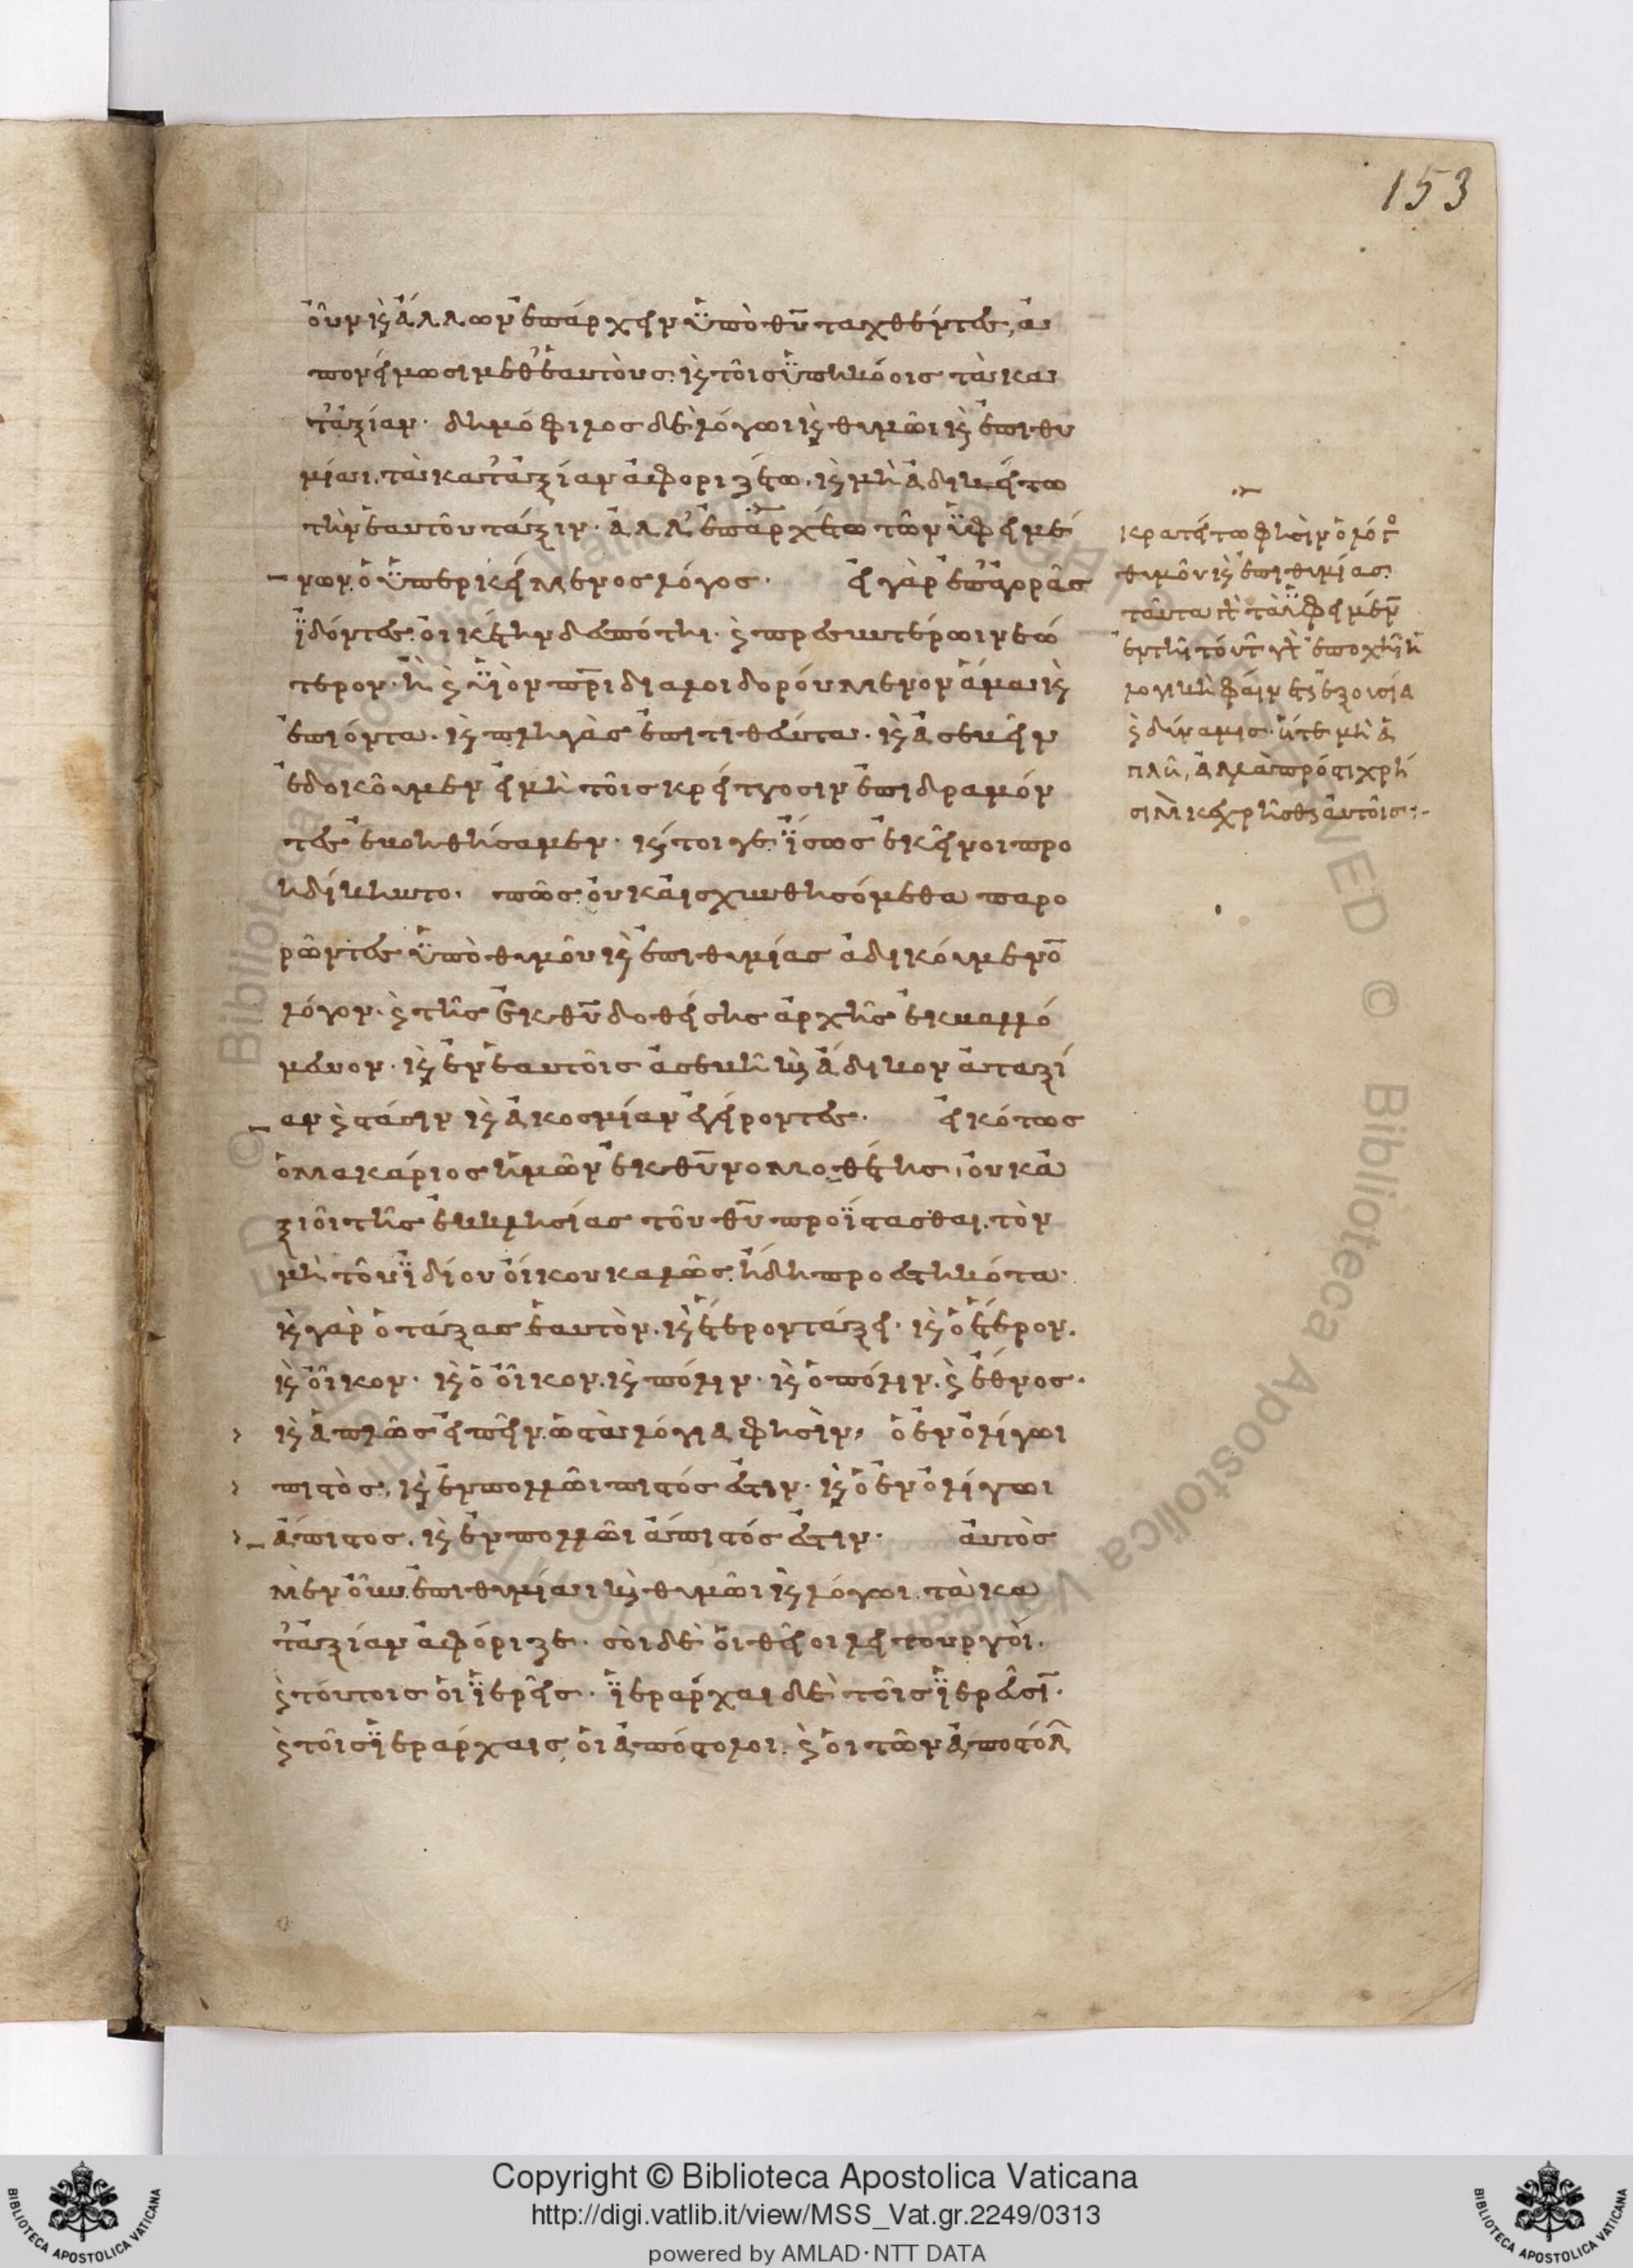 153
οὖν καὶ ἄλλων ἐπάρχειν ὑπὸ θυ ταχθέντες, ἀ
πονείμωσι μεθ' ἑαυτοὺς καὶ τοῖς ὑπηκόοις τὰ κα
τ' ἀξίαν. δημόφιλος δὲ λόγωι καὶ θυμῶι καὶ ἐπιθυ
μίαι, τὰ κατ' ἀξίαν ἀφοριζέτω. καὶ μὴ ἀδικείτω
τὴν ἑαυτοῦ τάξιν. ἀλλ' ἐπαρχέτω τῶν ὑφειμέ
νων ὁ ὑπερκείμενος λόγος. εἰ γὰρ ἐπ' ἀγορᾶς
ἰδόντες οἰκέτην δεσπότηι. καὶ πρεσβυτέρωι νεώ
τερον. ἢ καὶ υἱὸν πρι διαλοιδορούμενον ἅμα καὶ
ἐπιόντα. καὶ πληγὰς ἐπιτιθέντα. καὶ ἀσεβεῖν
ἐδοκοῦμεν εἰ μὴ τοῖς κρείττοσιν ἐπιδραμόν
τες ἐβοηθήσαμεν. καίτοιγε ἴσως ἐκεῖνοι προ
ηδίκηντο. πῶς οὐκ αἰσχυνθησόμεθα παρο
ρῶντες ὑπὸ θυμοῦ καὶ ἐπιθυμίας ἀδικούμενο
λόγον. καὶ τῆς ἐκ θυ δοθείσης ἀρχῆς ἐκβαλλό
μενον. καὶ ἐν ἑαυτοῖς ἀσεβῆ καὶ ἄδικον ἀταξί
αν καὶ στάσιν καὶ ἀκοσμίαν ἐγείροντες. εἰκότως
ὁ μακάριος ἡμῶν ἐκ θυ νομοθέτης, οὐκ ἀ
ξιοῖ τῆς ἐκκλησίας τοῦ θυ προΐστασθαι. τὸν
μὴ τοῦ ἰδίου οἴκου καλῶς ἤδη προεστηκότα.
καὶ γὰρ ὁ τάξας ἑαυτὸν. καὶ ἕτερον τάξει. καὶ ὁ ἕτερον.
καὶ οἶκον. καὶ ὁ οἶκον. καὶ πόλιν. καὶ ὁ πόλιν. καὶ ἔθνος.
καὶ ἁπλῶς εἰπεῖν ὡς τὰ λόγιά φησὶν, ὁ ἐν ὀλίγωι
πιστὸς, καὶ ἐν πολλῶι πιστός ἐστιν. καὶ ὁ ἐν ὀλίγωι
ἄπιστος, καὶ ἐν πολλῶι ἄπιστός ἐστιν. αὐτὸς
μὲν οὖν ἐπιθυμίαι καὶ θυμῶι καὶ λόγωι τὰ κα
τ' ἀξίαν ἀφόριζε. σοὶ δὲ οἱ θεῖοι λειτουργοὶ.
καὶ τούτοις οἱ ἱερεῖς. ἱεράρχαι δὲ τοῖς ἱερεῦσι.
καὶ τοῖς ἱεράρχαις οἱ ἀπόστολοι. καὶ οἱ τῶν ἀποστόλ
κρατείτω φησὶν ὁ λόγος
θυμοῦ καὶ ἐπιθυμίας
ταῦτα γὰρ τὰ ὑφειμέν
λογικὴ φαίνεται ἐξουσία
καὶ δύναμις. ἅτε μὴ ἁ
πλῆ, ἀλλὰ πρόστι χρή
σει κεχρῆσθαι αὐτοῖς:-
Copyright © Biblioteca Apostolica Vaticana
http://digi.vatlib.it/view/MSS_Vat.gr.2249/0313
powered by AMLAD·NTT DATA
BIBLIOTECA APOSTOLICA VATICANA
BIBLIOTECA APOSTOLICA VATICANA